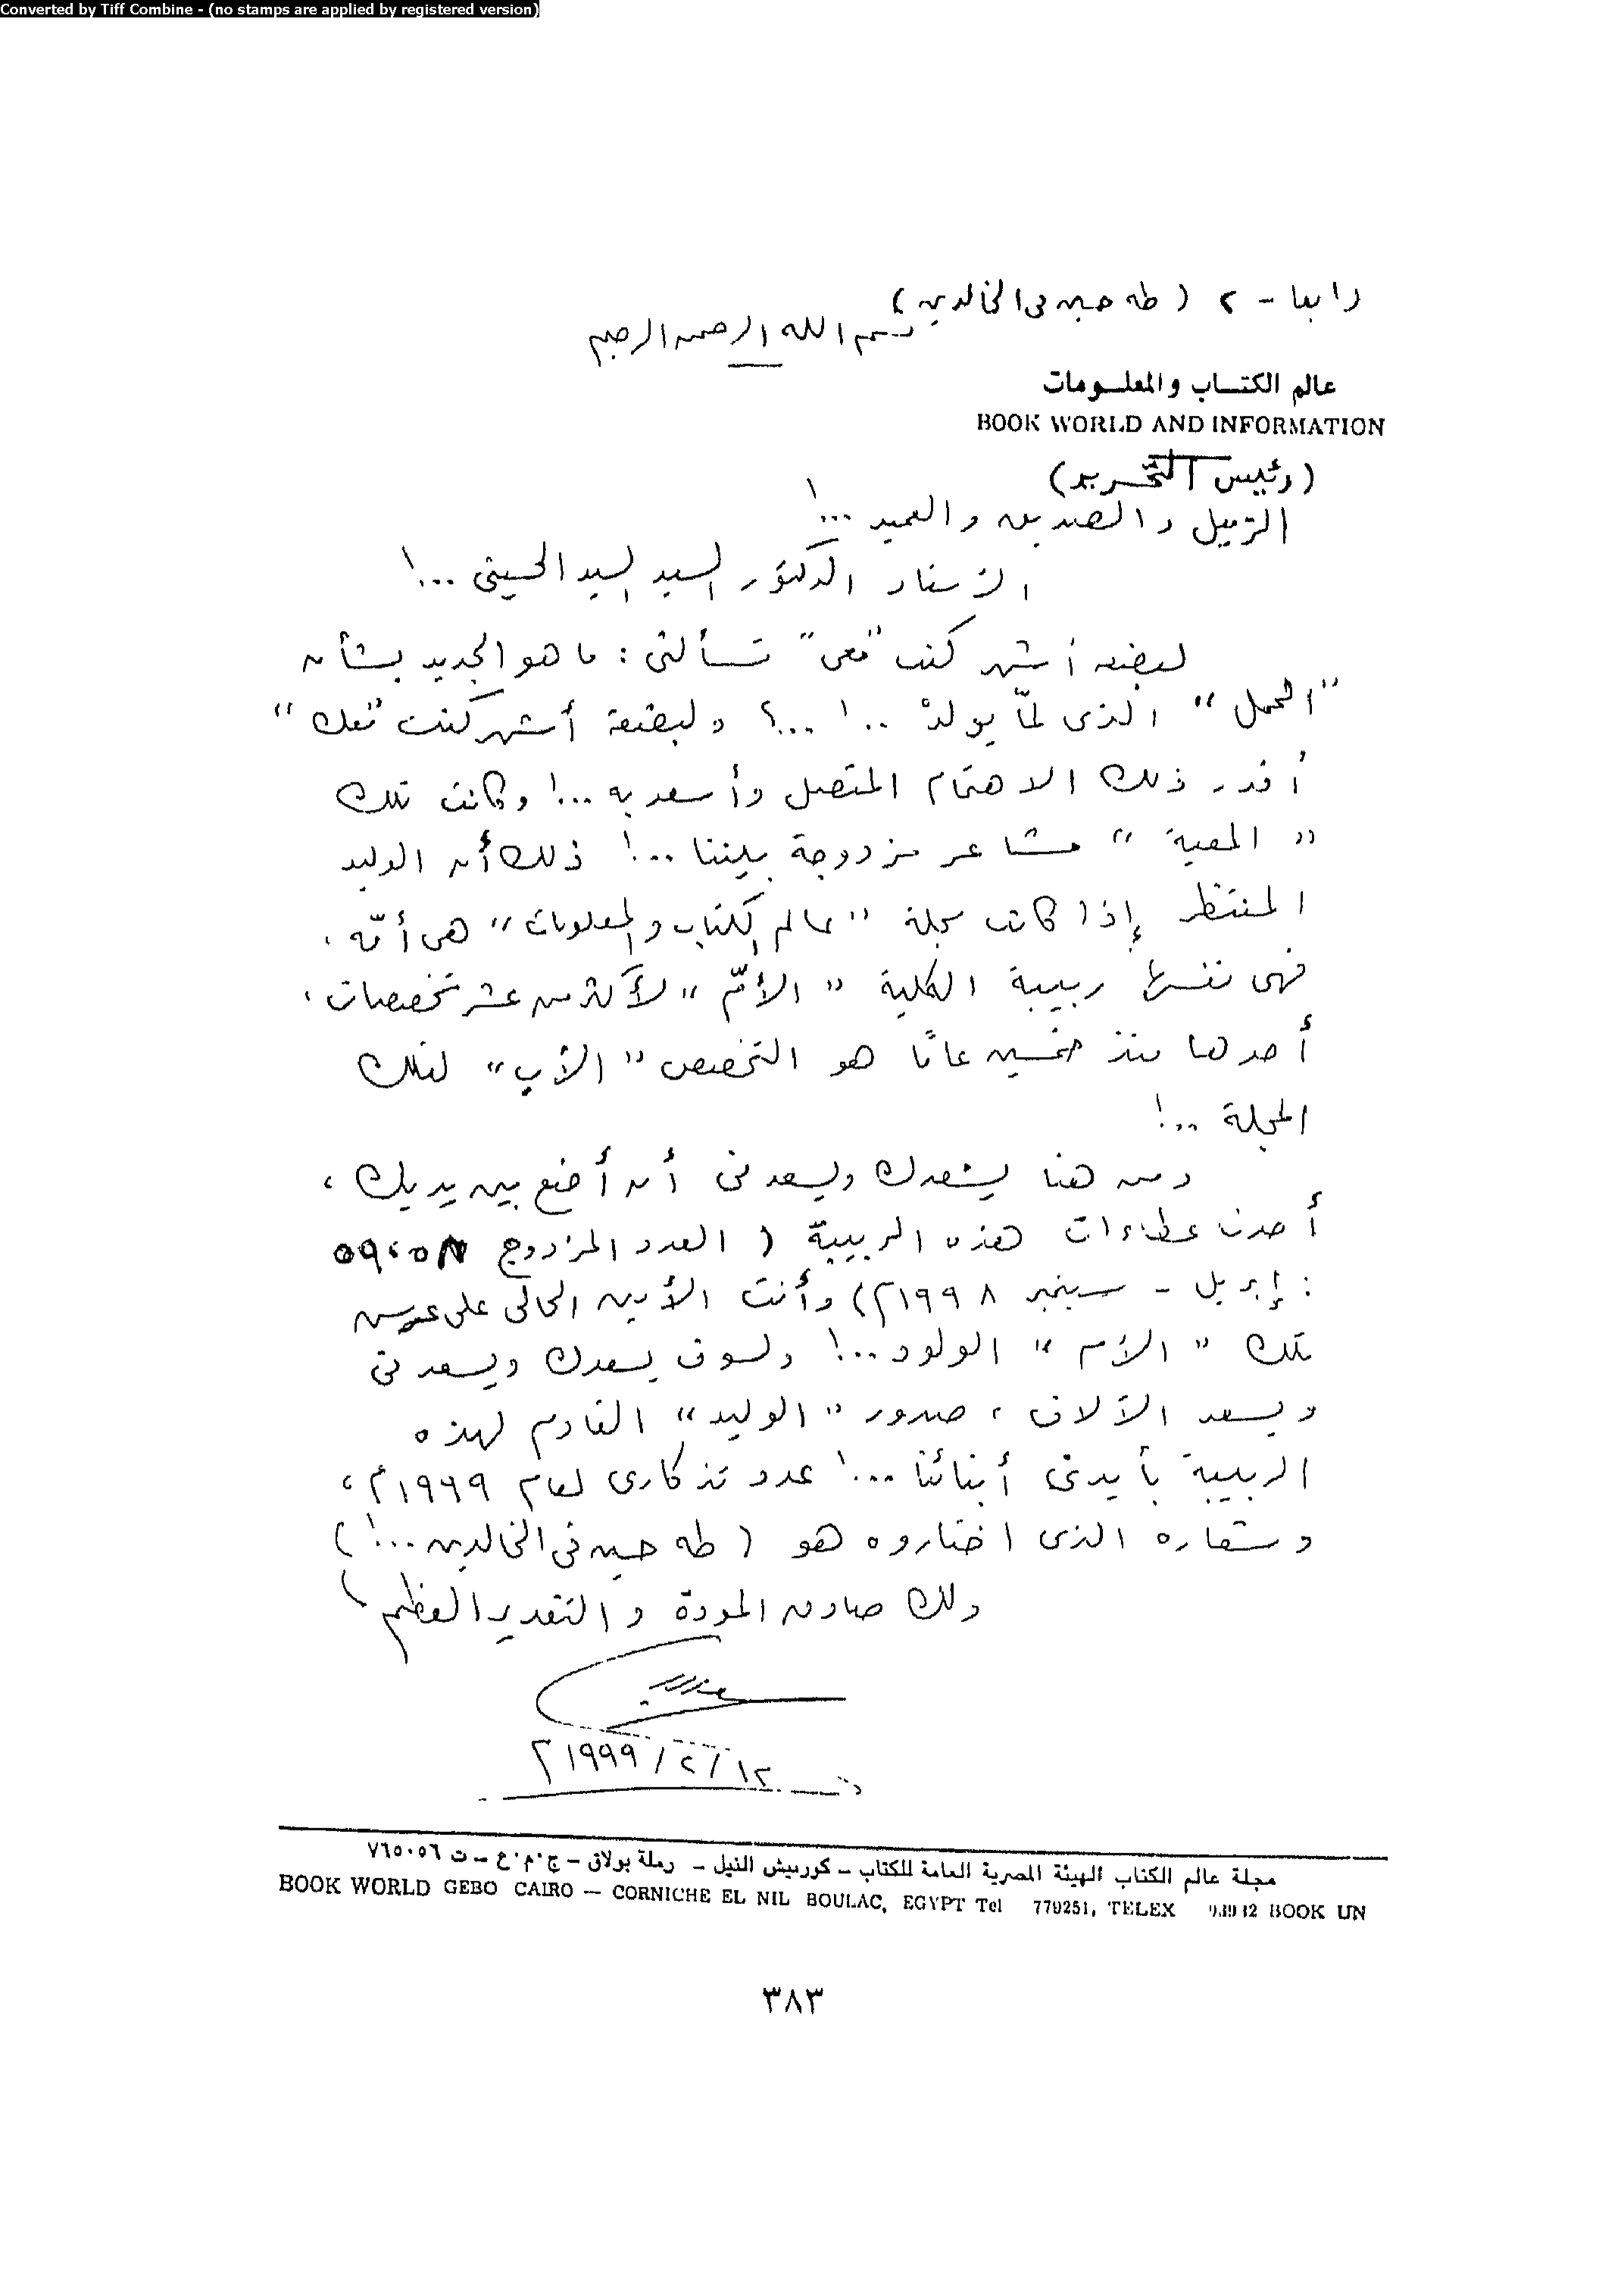 Converted by Tiff Combine - (no stamps are applied by registered version)
رابعا - ٢ ( طه حسين فى الخالدين )
بسم الله الرحمن الرحيم
عالم الكتاب والمعلومات
BOOK WORLD AND INFORMATION
(رئيس التحرير)
الزميل والصديق والعميد ...!
الأستاذ الدكتور السيد السيد الحسينى ...!
لبضعة أشهر كنت "معى" تسألنى : ما هو الجديد بشأن
"الحمل" الذى لمّا يولدْ ..! ...؟ ولبضعة أشهر كنت "معك"
أقدر ذلك الاهتمام المتصل وأسعد به ...! وكانت تلك
"المعية" مشاعر مزدوجة بيننا ...! ذلك أن الوليد
المنتظر إذا كانت مجلة "عالم الكتاب والمعلومات" هى أمّه ،
فهى نفسها ربيبة الكلية "الأمّ" لأكثر من عشر تخصصات ،
أحدها منذ خمسين عامًا هو التخصص "الأب" لتلك
المجلة ..!
ومن هنا يسعدك ويسعدنى أن أضع بين يديك ،
أحدث عطاءات هذه الربيبة ( العدد المزدوج ٥٨ ، ٥٩
: إبريل - سبتمبر ١٩٩٨م) وأنت الأمين الحالى على عرس
تلك "الأم" الولود ...! ولسوف يسعدك ويسعدنى
ويسعد الآلاف ، صدور "الوليد" القادم لهذه
الربيبة بأيدى أبنائنا ...! عدد تذكارى لعام ١٩٩٩م ،
وشعاره الذى اختاروه هو ( طه حسين فى الخالدين ...! )
ولك صادق المودة والتقدير العظيم
١٢ / ٢ / ١٩٩٩م
مجلة عالم الكتاب الهيئة المصرية العامة للكتاب - كورنيش النيل - رملة بولاق - ج.م.ع - ت ٧٦٥٠٥٦
BOOK WORLD GEBO CAIRO — CORNICHE EL NIL BOULAC, EGYPT Tel 779251, TELEX BOOK UN
٣٨٣